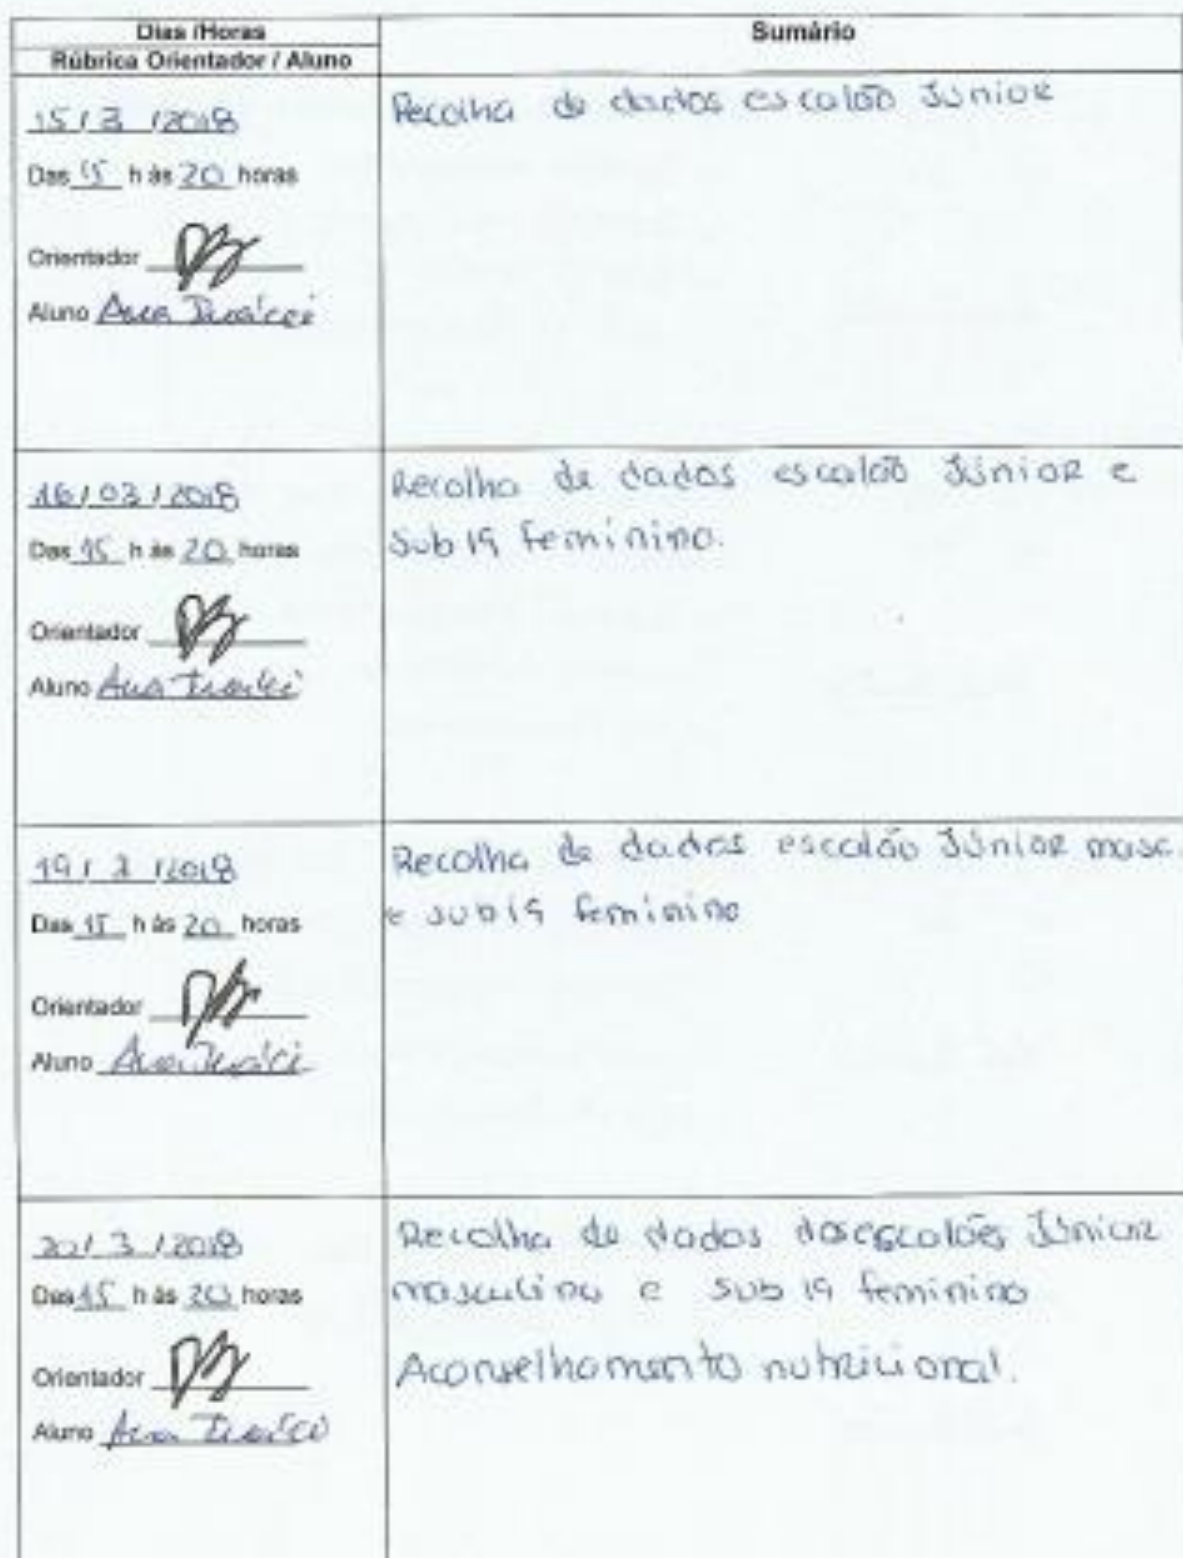 Dias /Horas
Rúbrica Orientador / Aluno
Sumário
15 / 3 / 2018
Das 15 h às 20 horas
Orientador
Aluno Ana
Recolha de dados escalão Júnior
16 / 03 / 2018
Das 15 h às 20 horas
Orientador
Aluno Ana
Recolha de dados escalão Júnior e
Sub 19 feminino.
19 / 3 / 2018
Das 15 h às 20 horas
Orientador
Aluno Ana
Recolha de dados escalão Júnior masc.
e sub 19 feminino
20 / 3 / 2018
Das 15 h às 20 horas
Orientador
Aluno Ana
Recolha de dados dos escalões Júnior
masculino e sub 19 feminino
Aconselhamento nutricional.